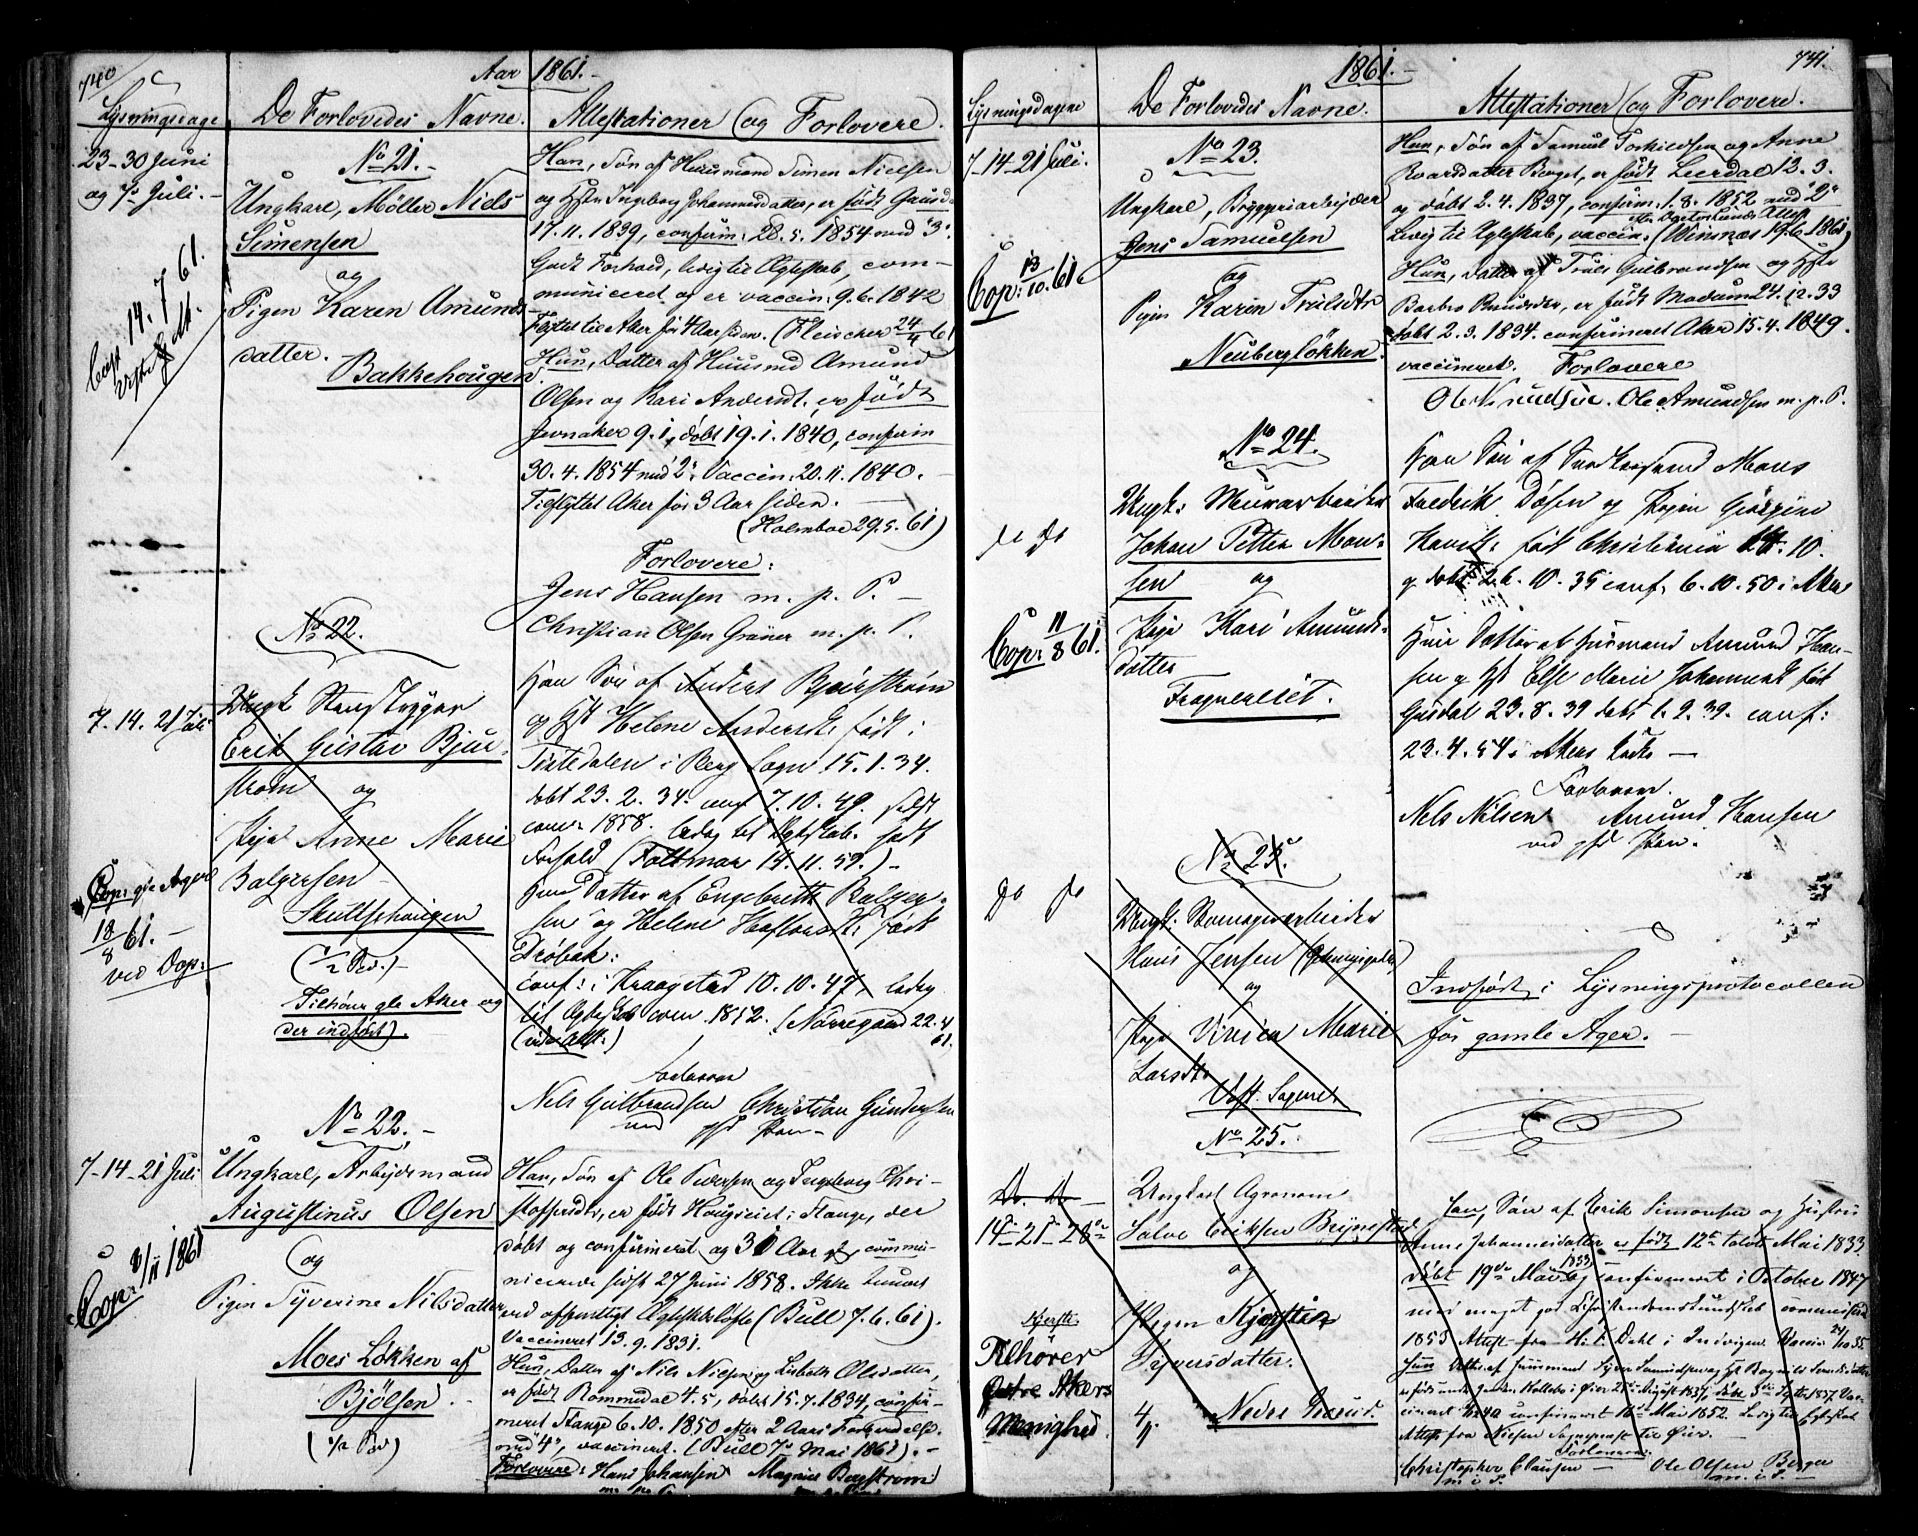 740
Aar 1861.-
Lysningsdage
De Forlovedes Navne.
Attestationer og Forlovere.
23-30 Juni
og 7. Juli.-
Cop: 14.7.61.
No 21.-
Ungkarl, Møller Niels
Simensen
og
Pigen Karen Amunds-
datter.
Bakkehougen
Han, Søn af Huusmand Simen Nielsen
og Hstr Ingeborg Johannesdatter, er født Gausd.
17.11.1839, confirm: 28.5.1854 med "3".
Godt Forhold, ledig til Ægteskab, com-
municeret og er vaccin: 9.6.1842
Flyttet til Aker for 4 Aar siden. (Fleischer 24/4 61)
Hun, Datter af Huusmd Amund
Olsen og Kari Andersdt, er født
Jevnaker 9.1, døbt 19.1.1840, confirm
30.4.1854 med "2". Vaccin: 20.11.1840.
Tilflyttet Aker for 3 Aar siden.
(Holmboe 29.5.61)
Forlovere:
Jens Hansen m. p. P.
Christian Olsen Grüner m. p. P.
No 22.
7. 14. 21 Juli
Ungk
Erik Gustav Bjur-
strøm og
Pige Anne Marie
Balgersen
Skultsehaugen
(1/2 Spd.)-
Tilhører gle Aker og
der indført).
Cop: gle Ager
18/8 61.-
ved Dop:
Han Søn af Anders Bjurstrøm
og Hst Helene Andersdt født i
Tistedalen i Berg Sogn 15.1.34.
døbt 23.2.34. conf 7.10.49. sidst
comm 1858. ledig til Ægteskab. godt
Forhold (Foltmar 14.11.59.)-
Hun Datter af Engebreth Balger-
sen og Helene født
Drøbak:
conf: i Kraagstad 10.10.47, ledig
til Ægteskab com. 1852. (Nørregaard 22.4
61.
(vide Att:)
Forlovere
Nels Gulbrandsen Christian Gundersen
med ført Pen-
No 22.-
7-14-21 Juli
Ungkarl, Arbeidsmand
Augustinus Olsen
og
Pigen Syverine Nilsdatter
Moes Løkken af
Bjølsen.
(1/2 Spd)
Cop: 3/11 1861
Han, Søn af Ole Pedersen og Ingeborg Chri-
stoffersdtr, er født i Stange, der
døbt og confirmeret og 31 Aar gl, commu-
nicerede sidst 27 Juni 1858. Ikke bunden
ved offentligt Ægteskabsløfte (Bull 7.6.61).
Vaccineret 13.9.1831.
Hun, Datter af Nils Nielsen og Lisbeth Olsdatter,
er født Rommedal 4.5, døbt 15.7.1834, confir-
meret Stange 6.10.1850 efter 2 Aars Forberedelse
med "4", vaccineret. (Bull 7. Mai 1861).-
Forlovere: Hans Johansen Magnus Bergstrøm
741.
1861.-
Lysningsdagene
De Forlovedes Navne.
Attestationer og Forlovere.
7-14-21 Juli.
Cop: 13/10.61.
No 23.
Ungkarl, Bryggeriarbejder
Jens Samuelsen
og
Pigen Karen Trulsdtr
Neuberg løkken.
Han, Søn af Samuel Torkildsen og Anne
Ivarsdatter Berget, er født Leerdal 12.3.
og døbt 2.4.1837, confirm. 1.8.1852 med "2"
Ledig til Egteskab, vaccin: (Winsnæs 19.6.1861)
Hun, Datter af Truls Gulbrandsen og Hstr
Barbro Knudsdtr, er født Modum 24.12.33
døbt 2.3.1834. confirmeret Aker 15.4.1849.
vaccineret. Forlovere
Ole Knudsen. Ole Amundsen m. p. P.
No 24.
do do
Ungk: Muurarbeider
Johan Petter Mon-
sen og
Pige Kari Amunds-
datter
Cop: 11/8 61.
Han Søn af Mons
Fredrik og Pigen Georgine
født Christiania 14.10.
og døbt 26.10.35 conf. 6.10.50 i Aker
Hun Datter af Husmand Amund Han-
sen og Hst Else Marie Johannesdt født
Gusdal 23.8.39 døbt 1.9.39. conf:
23.4.54 i Akers Kirke -
Forlovere.
Nels Nilsen Amund Hansen
ved ført Pen.
No 25.
do do
Ungk: arbeider
Hans Jensen
og
Pige Marie
Larsdtr
Vest. Sagene
Indført i Lysningsprotocollen
for gamle Ager.-
No 25.
14- 21- 28de
Ungkarl Agronom
Salve Eriksen Brynestad
og
Pigen Kjerstin
Syversdatter.
Nedre
Kjersti
Tilhører
Østre Akers
Menighed.
Han, Søn af Erik Simonsen og Hustru
Anne Johannesdatter er født 12te Mai 1833,
døbt 19de Mai 1833 og confirmeret i October 1847
med meget god Christendomskundskab
1853 Attest fra H. T. Dahl i Vaccin
Attest fra Nielsen Sogneprest til Øier.
Forlovere:
Christopher Clausen - Ole Olsen Berger
m. i. P. m. i. P.